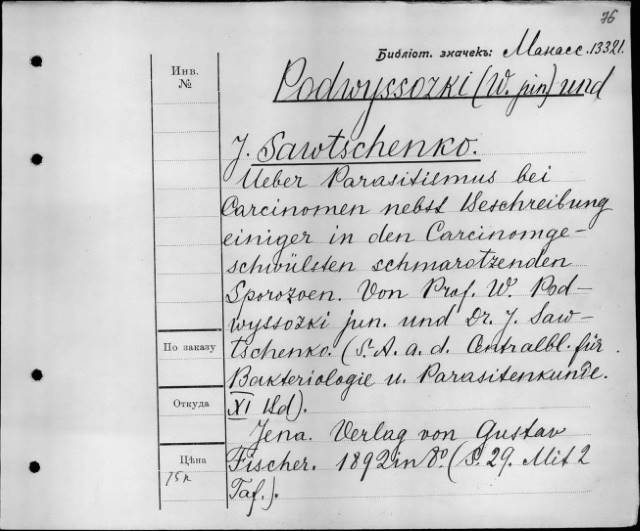 76
Библіот. значекъ: Манасс. 13321.
Инв.
№
Podwyssozki (W. jun) und
J. Sawtschenko.
Ueber Parasitismus bei
Carcinomen nebst Beschreibung
einiger in den Carcinomge-
schwülsten schmarotzenden
Sporozoen. Von Prof. W. Pod-
wyssozki jun. und Dr. J. Saw-
По заказу
tschenko. (S. A. a. d. Centralbl. für
Bakteriologie u. Parasitenkunde.
Откуда
XI Bd).
Jena. Verlag von Gustav
Цѣна
Fischer. 1892 in 8º. (S. 29. Mit 2
75к
Taf.).